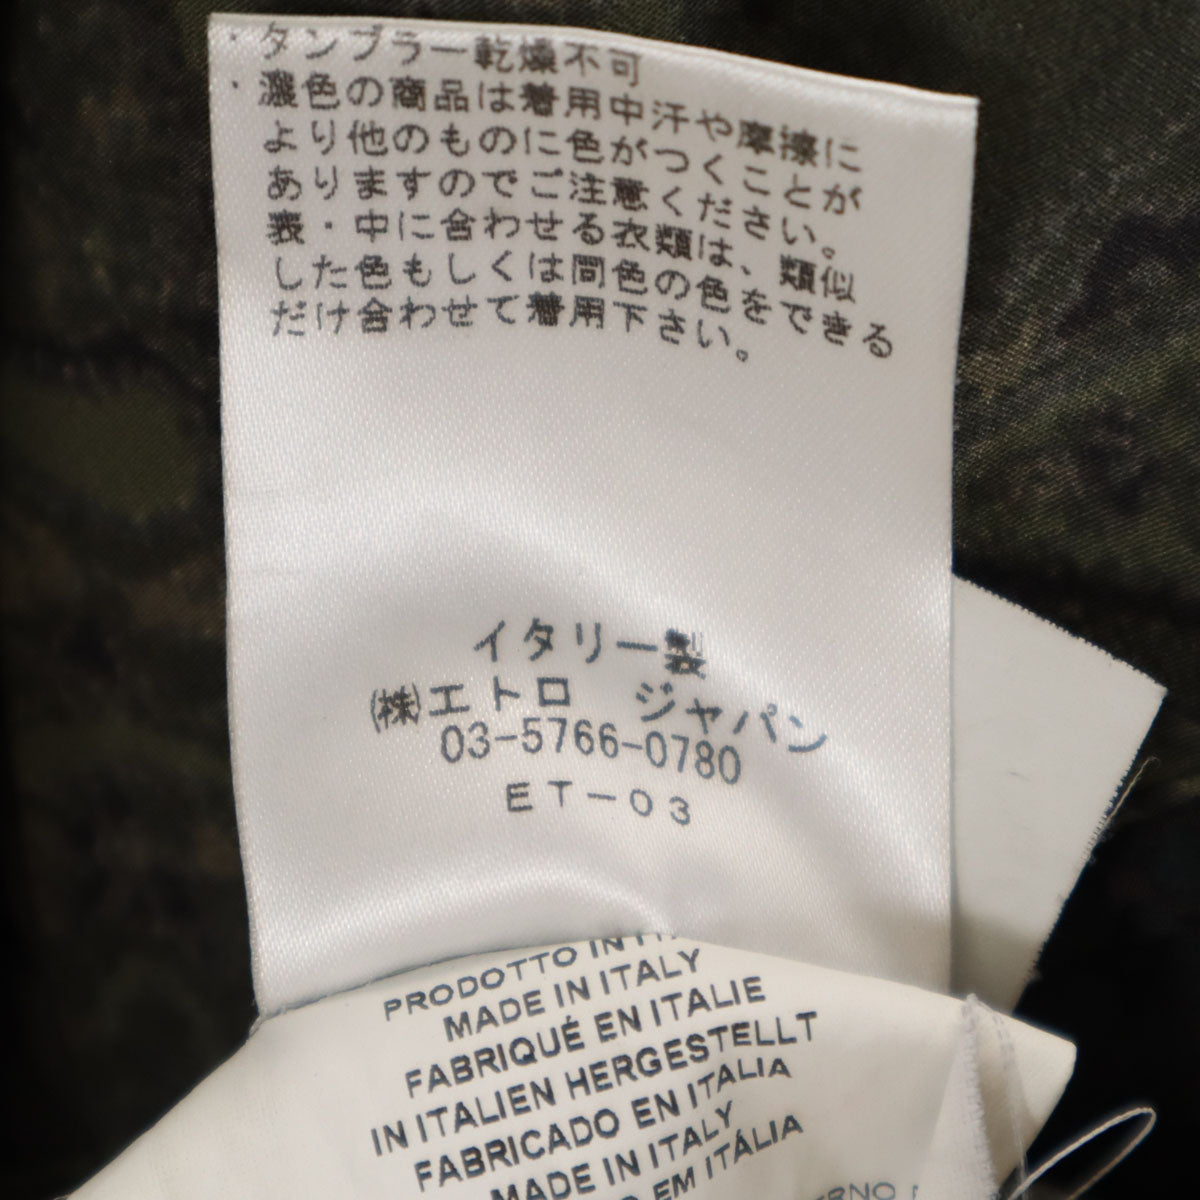 ・タンブラー乾燥不可
・濃色の商品は着用中汗や摩擦に
より他のものに色がつくことが
ありますのでご注意ください。
表・中に合わせる衣類は、類似
した色もしくは同色の色をできる
だけ合わせて着用下さい。
イタリー製
㈱エトロ ジャパン
03-5766-0780
ET-03
PRODOTTO IN
MADE IN ITALY
FABRIQUÉ EN ITALIE
IN ITALIEN HERGESTELLT
FABRICADO EN ITALIA
MADE IN ITALY
EM ITÁLIA